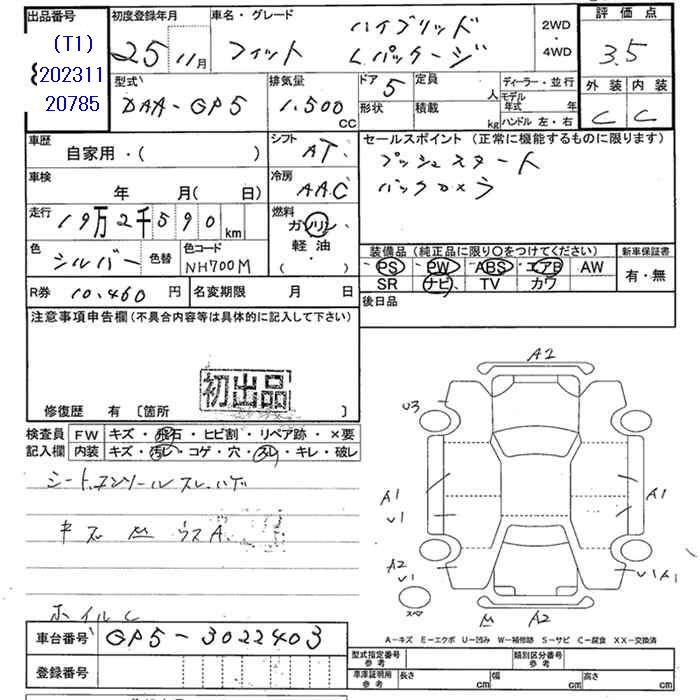 出品番号 初度登録年月 車名・グレード 2WD・4WD 評価点
(T1)
202311
20785
25 11月 フィット ハイブリッド Lパッケージ 3.5
型式 排気量 ドア 形状 定員 人 積載 kg ディーラー・並行 モデル年式 年 ハンドル 左・右 外装 内装
DAA-GP5 1,500 CC 5 C C
車歴 自家用・( ) シフト AT セールスポイント (正常に機能するものに限ります)
プッシュスタート
バックカメラ
車検 年 月( 日) 冷房 AAC
走行 19万2千590 km 燃料 ガソリン 軽油 ( ・ )
色 シルバー 色替 色コード NH700M
装備品 (純正品に限り○をつけてください) 新車保証書
PS PW ABS エアB AW 有・無
SR ナビ TV カワ
R券 10,460 円 名変期限 月 日 後日品
注意事項申告欄 (不具合内容等は具体的に記入して下さい)
初出品
修復歴 有 〔箇所 〕
検査員 FW キズ・飛石・ヒビ割・リペア跡・×要
記入欄 内装 キズ・汚レ・コゲ・穴・スレ・キレ・破レ
シート、コンソールスレ、ハゲ
キズ 凹 ウスA
ホイルC
A2
U3
A1
U1
A1
A2
U1
U1A1
スペア
A2
A-キズ E-エクボ U-凹み W-補修跡 S-サビ C-腐食 XX-交換済
車台番号 GP5-3022403
登録番号
型式指定番号 参考 類別区分番号 参考
車庫証明用 参考 長さ cm 幅 cm 高さ cm